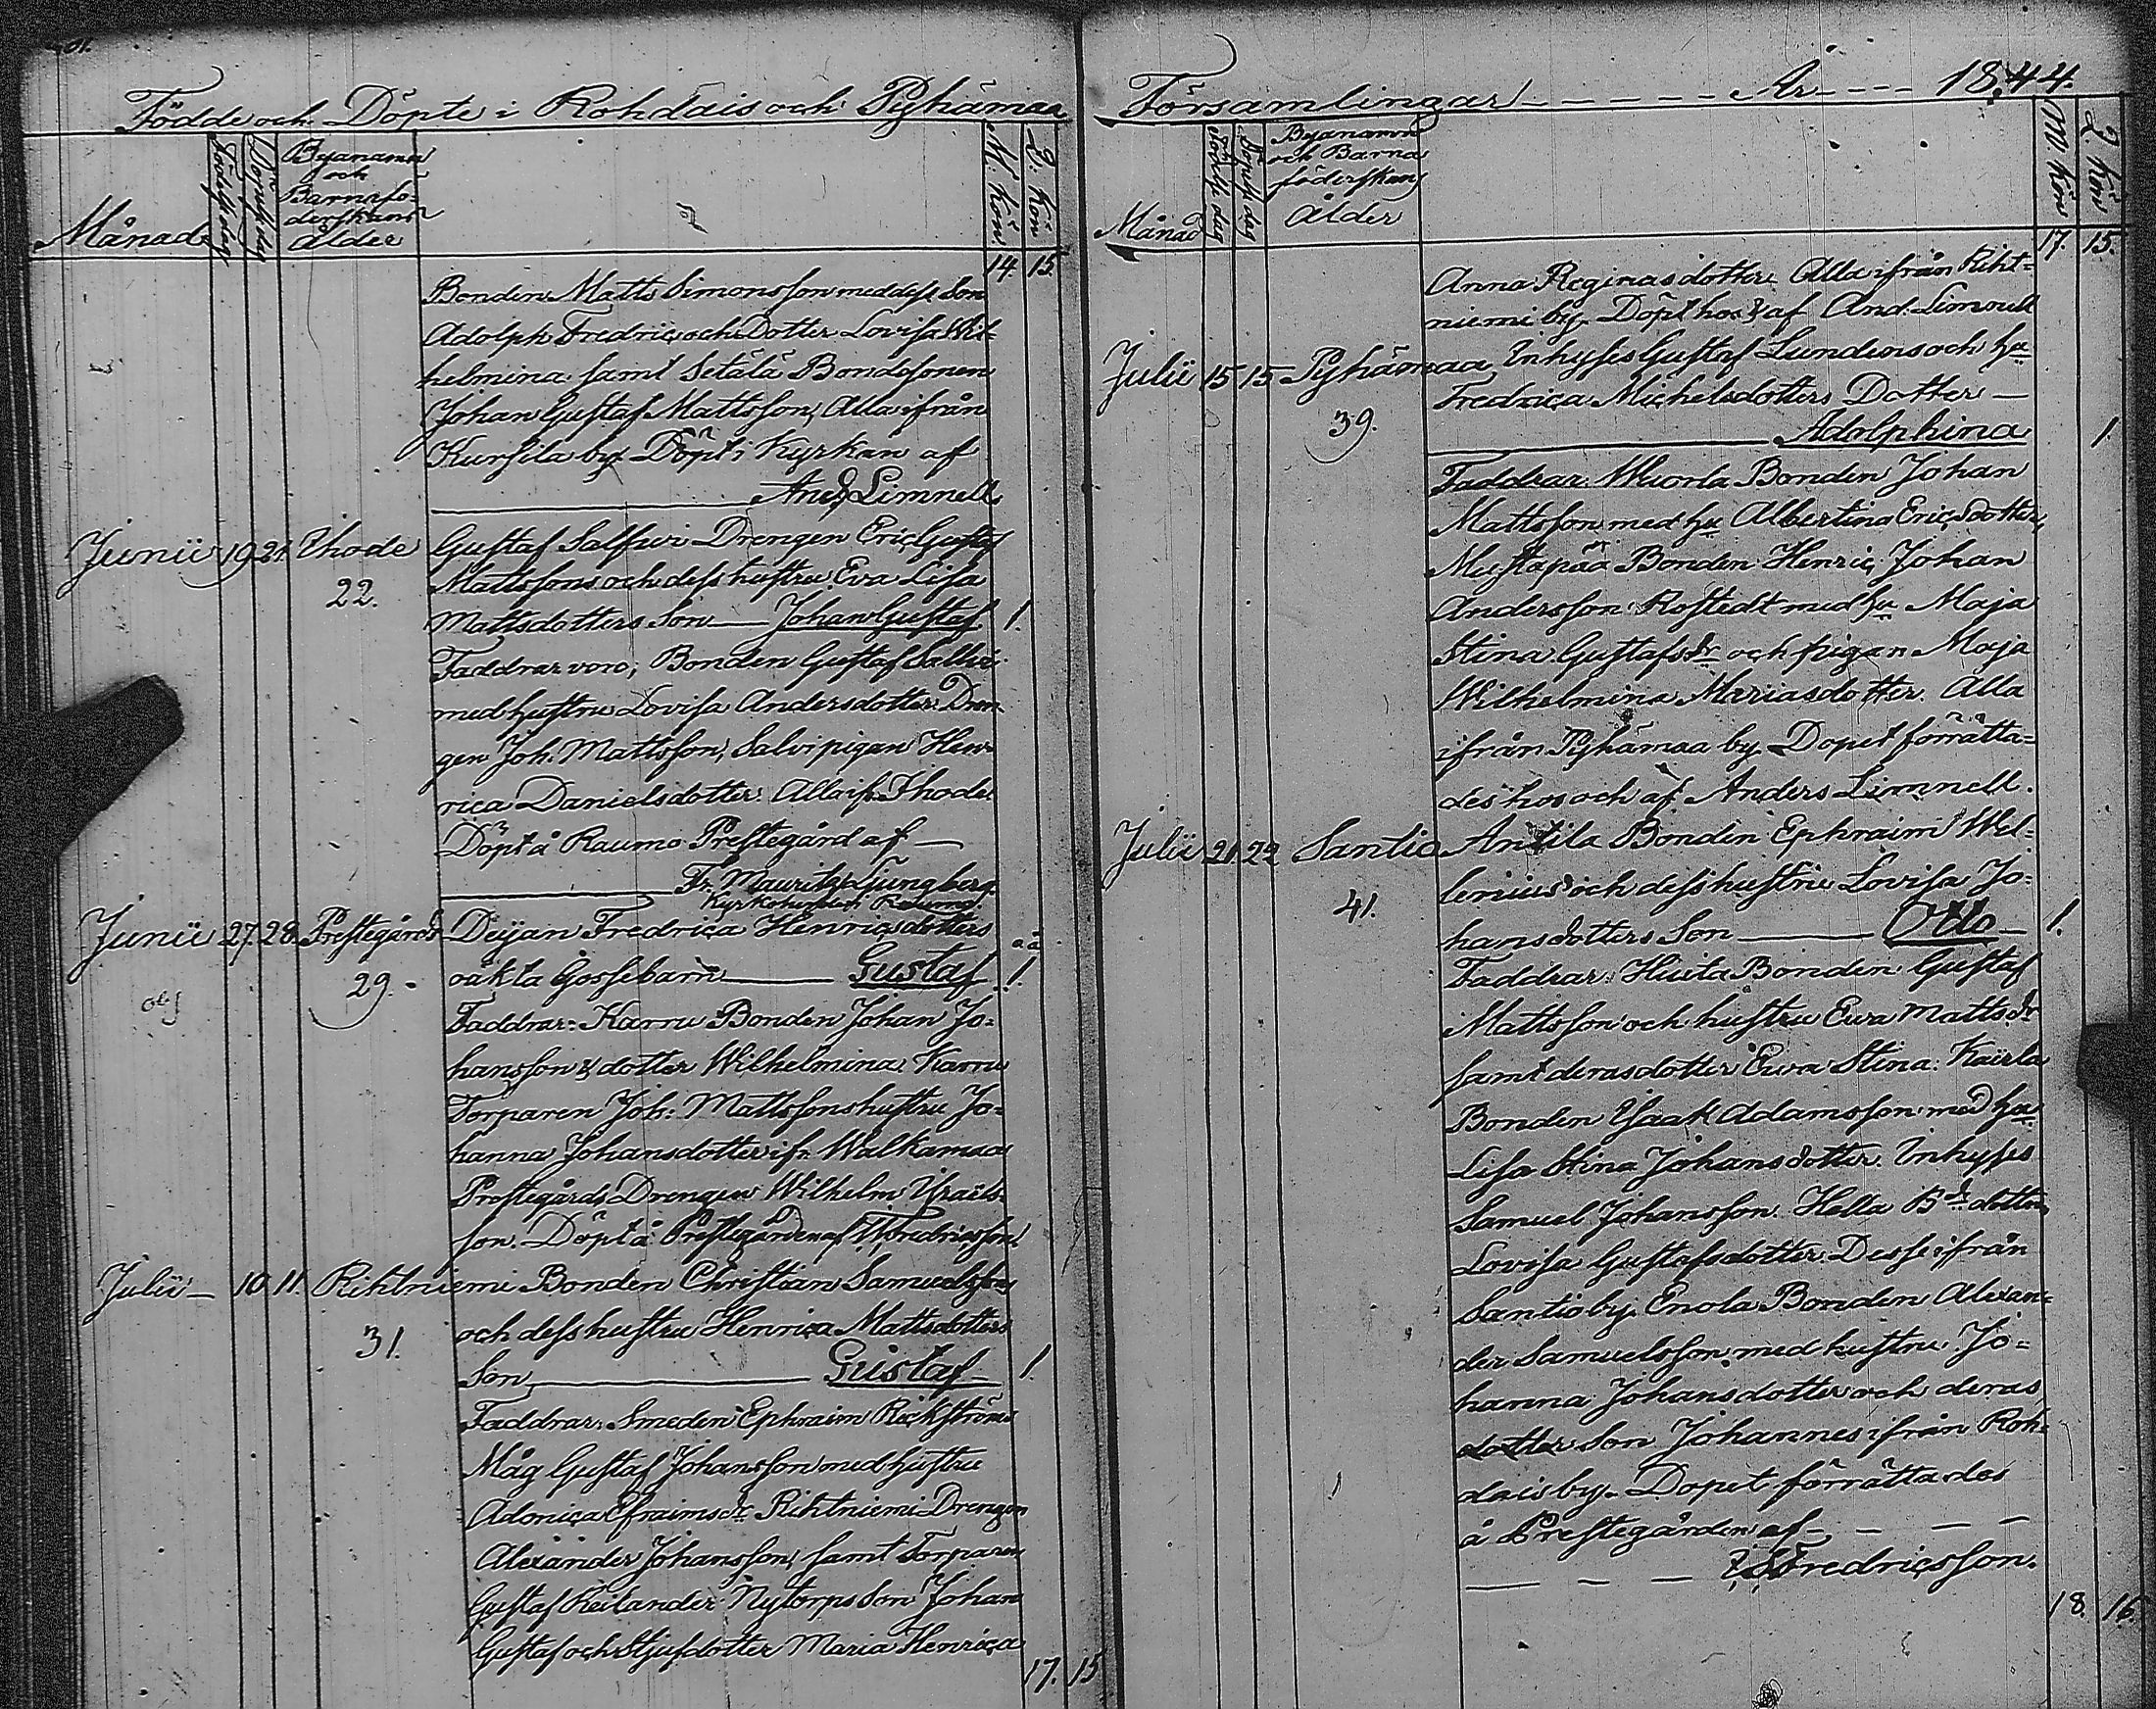 Födde och Döpte i Rohdais och Pyhämaa
Månad
Födelse dag
Döpelse dag
Byanamn
och
Barnafö-
derskans
ålder
M. kön
Q. kön
14. 15.
Bonden Matts Simonsson med dess Son
Adolph Fredric och Dotter Lovisa Wil-
helmina samt Setälä Bondesonen
Johan Gustaf Mattsson, Alla ifrån
Kursila by. Döpt i Kyrkan af
And. Limnell
Junii 19 21. Ihode Gustaf Salfvi Drengen Eric Gustaf
22. Mattssons och dess hustru Eva Lisa
Mattsdotters Son Johan Gustaf 1.
Faddrar voro; Bonden Gustaf Sallvi
med hustru Lovisa Andersdotter. Dren-
gen Joh. Mattsson, Salvi pigan Hen-
rica Danielsdotter. Alla ifr. Ihode.
Döpt å Raumo Prestegård af
Fr. Mauritz Ljungberg.
Kyrkoherde i Raumo.
Junii 27. 28. Prestegårds Deijan Fredrica Henricsdotters
29. oäkta Gossebarn Gustaf 1.
oä
Faddrar: Karru Bonden Johan Jo-
hansson & dotter Wilhelmina. Karru
Torparen Joh: Mattssons hustru Jo-
hanna Johansdotter ifr. Walkamaa
Prestegårds Drengen Wilhelm Israels-
son. Döpt å Prestegården af Fredricsson.
Julii 10 11. Rihtniemi Bonden Christian Samuelssons
31. och dess hustru Henrica Mattsdotters
Son Gustaf 1.
Faddrar: Smeden Ephraim Rickströms
Måg Gustaf Johansson med hustru
Adonica Efraimsdr. Rihtniemi Drengen
Alexander Johansson, samt Torparen
Gustaf Keilander Nytorps Son Johan
Gustaf och Stjufdotter Maria Henrica
17. 15
Församlingar År 1844.
Månad
Födelse dag
Döpelse dag
Byanamn
och Barna
föderskans
Ålder
M kön
Q. kön
17. 15.
Anna Reginasdotter. Alla ifrån Riht-
niemi by. Döpt hos & af And. Limnell
Julii 15 15 Pyhämaa Inhyses Gustaf Lundens och hu
39. Fredrica Michelsdotters Dotter
Adolphina 1.
Faddrar: Wuorla Bonden Johan
Mattsson med hu Albertina Ericsdotter,
Mustapää Bonden Henric Johan
Andersson Rostedt med hu Maja
Stina Gustafsdr och pigan Maja
Wilhelmina Mariasdotter. Alla
ifrån Pyhämaa by. Dopet förrätta-
des hos och af Anders Limnell.
Julii 21. 22 Santio Antila Bonden Ephraim Wel-
41. lenius och dess hustru Lovisa Jo-
hansdotters Son Otto 1.
Faddrar: Huita Bonden Gustaf
Mattsson och hustru Ewa Mattsdr
samt deras dotter Ewa Stina: Kairla
Bonden Isaak Adamsson med hu
Lisa Stina Johansdotter. Inhyses
Samuel Johansson. Hella Bds dotter
Lovisa Gustafsdotter. Desse ifrån
Santio by. Enola Bonden Alexan-
der Samuelsson med hustru Jo-
hanna Johansdotter och deras
dotter Son Johannes ifrån Roh-
dais by. Dopet förrättades
å Prestegården af
Fredricsson.
18. 16